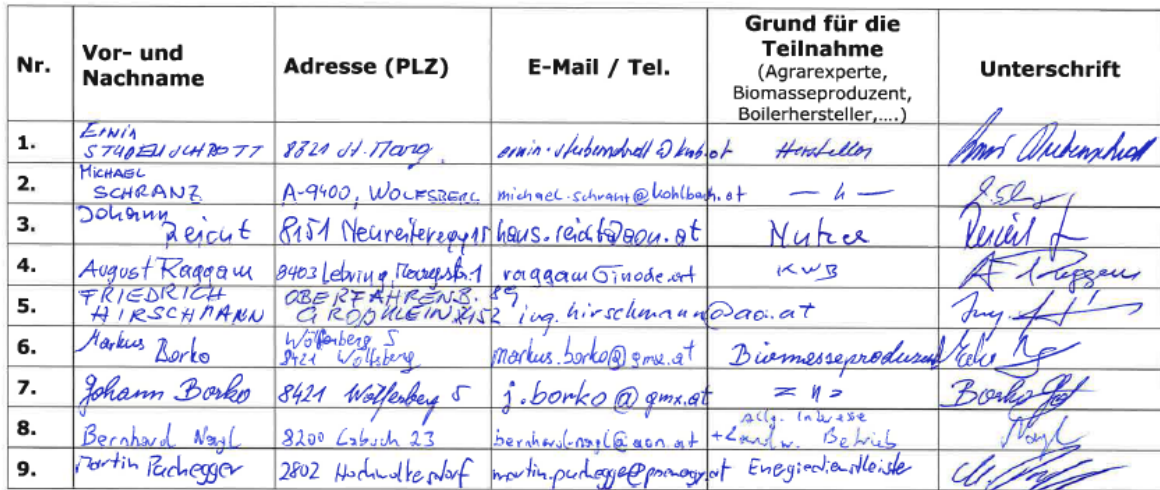 Nr. Vor- und Nachname Adresse (PLZ) E-Mail / Tel. Grund für die Teilnahme (Agrarexperte, Biomasseproduzent, Boilerhersteller,....) Unterschrift
1. Erwin STUBENSCHROTT 8321 St. Marg. erwin.stubenschrott@kwb.at Hersteller
2. MICHAEL SCHRANZ A-9400, WOLFSBERG michael.schranz@kohlbach.at — " —
3. Johann Reicht 8151 hans.reicht@aon.at Nutzer
4. August Raggam 8403 Lebring, Margstr. 1 raggam@inode.at KWB
5. FRIEDRICH HIRSCHMANN OBERFAHRENB. 89 GROßKLEIN ing.hirschmann@aon.at
6. Markus Borko 8421 Wolfsberg markus.borko@gmx.at Biomasseproduzent
7. Johann Borko 8421 5 j.borko@gmx.at = " = Borko
8. Bernhard Nagl 8200 23 bernhard.nagl@aon.at allg. Interesse + Landw. Betrieb Nagl
9. Martin Puchegger 2802 Hochwolkersdorf Energiedienstleister